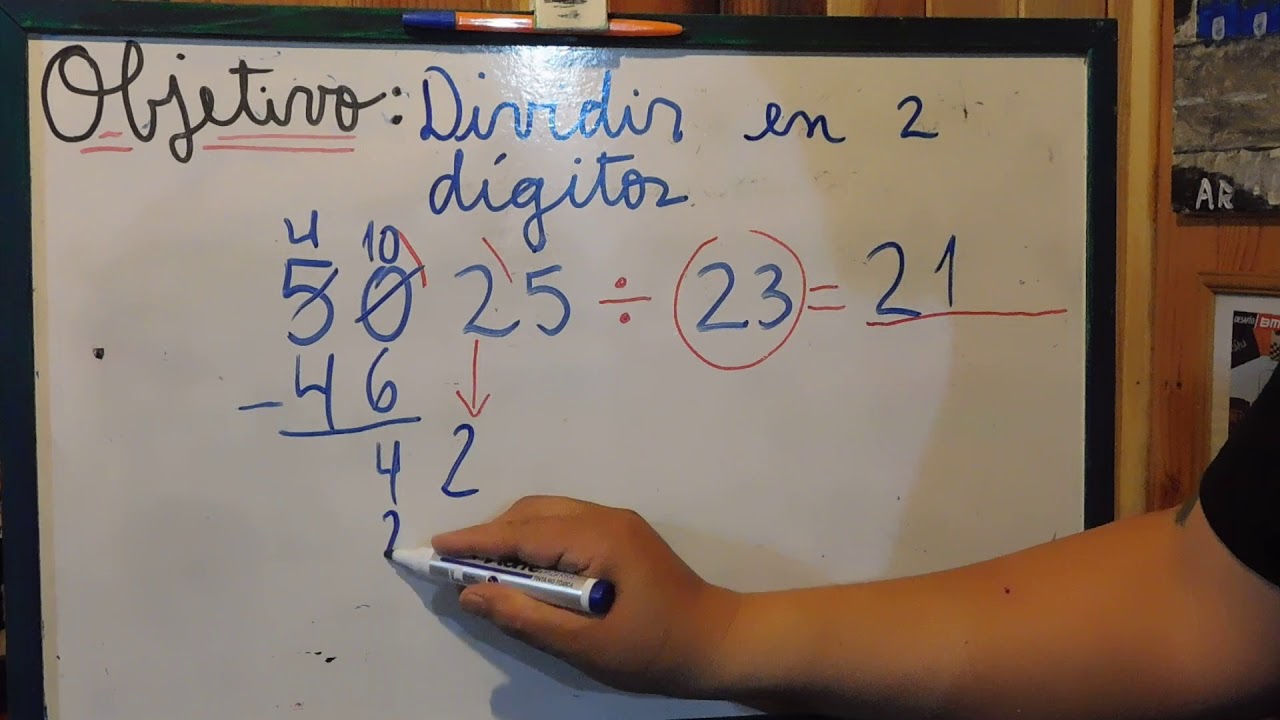 Objetivo: Dividir en 2
dígitos
4 10
50 25 ÷ 23 = 21
- 46
4 2
2
AR